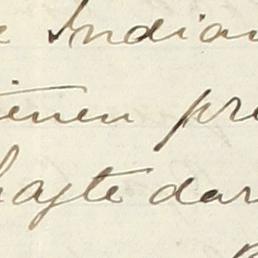 Indian
ienen pre
hagte dar